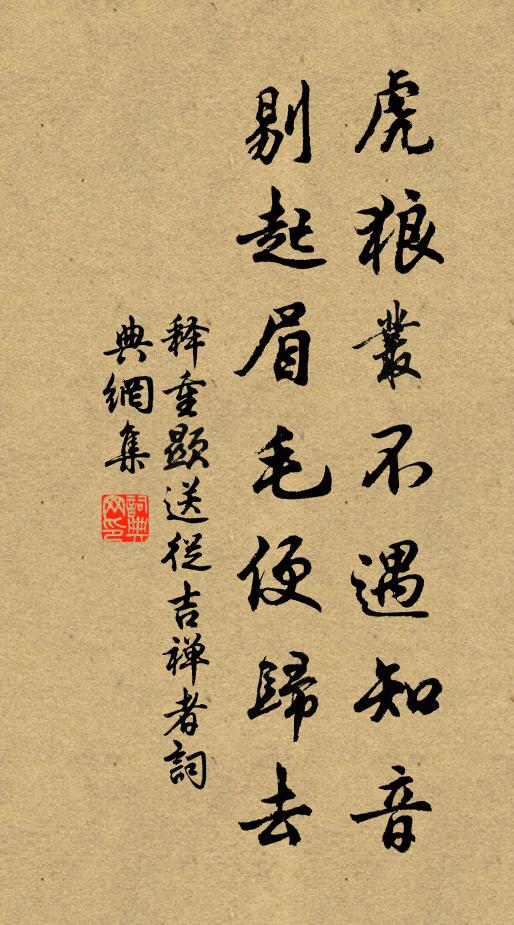 虎狼叢不遇知音
剔起眉毛便歸去
释重顯送從吉禅者詞
典網集
詞典网印